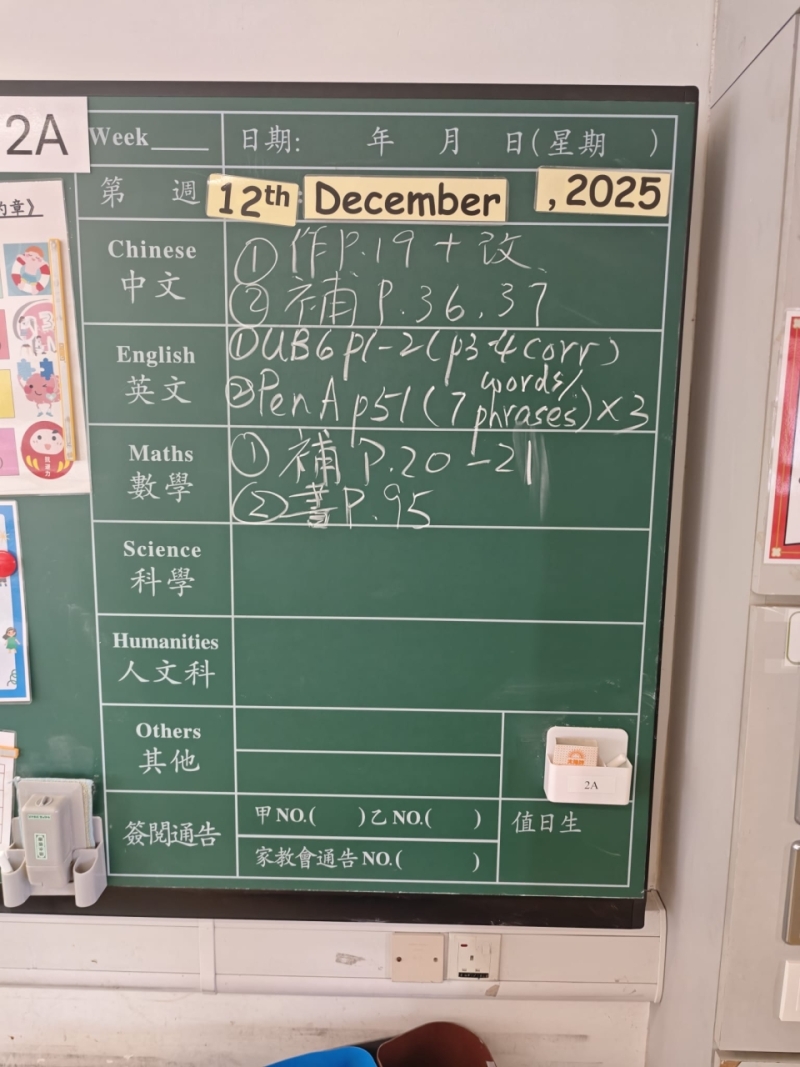 2A
Week____ 日期: 年 月 日(星期 )
第 週 12th December , 2025
Chinese
中文
① 作P.19 + 改
② 補 P.36,37
English
英文
①UUB6 p1-2(p3-4 corr)
②PenA p51(7 words/phrases)×3
Maths
數學
① 補 P.20-21
② 書 P.95
Science
科學
Humanities
人文科
Others
其他
2A
簽閱通告
甲NO.( )乙NO.( )
家教會通告NO.( )
值日生